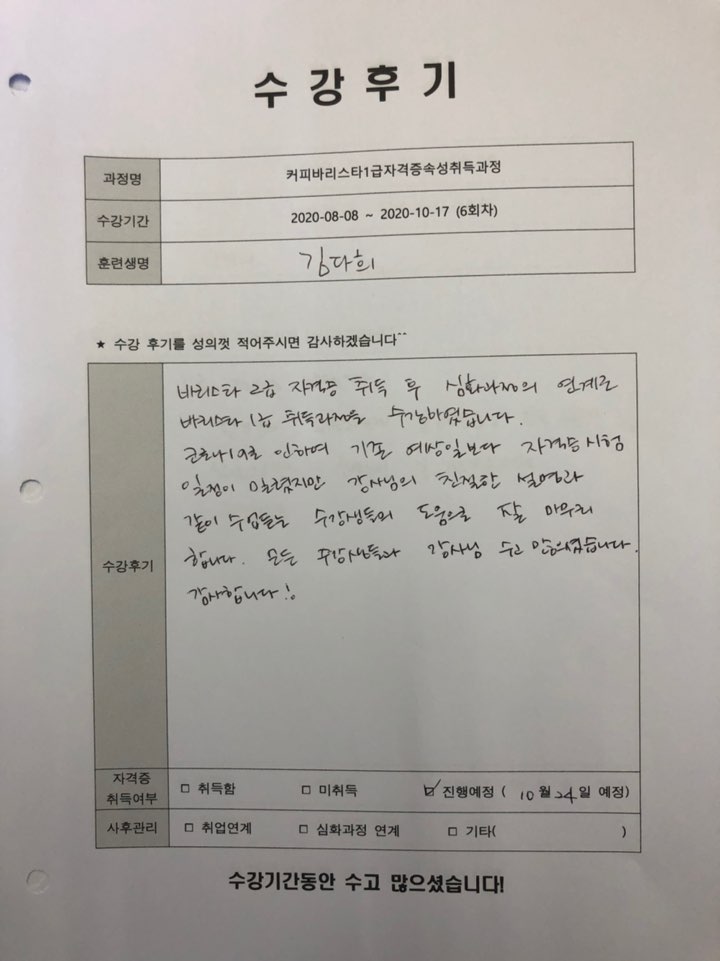 수강후기
과정명 커피바리스타1급자격증속성취득과정
수강기간 2020-08-08 ~ 2020-10-17 (6회차)
훈련생명 김다희
★ 수강 후기를 성의껏 적어주시면 감사하겠습니다^^
수강후기
바리스타 2급 자격증 취득 후 심화과정의 연계로
바리스타 1급 취득과정을 수강하였습니다.
코로나19로 인하여 기존 예상일보다 자격증 시험
일정이 밀렸지만 강사님의 친절한 설명과
같이 수업듣는 수강생들의 도움으로 잘 마무리
합니다. 모든 수강생들과 강사님 수고 많으셨습니다.
감사합니다!
자격증
취득여부 □ 취득함 □ 미취득 ☑ 진행예정 ( 10월 24일 예정)
사후관리 □ 취업연계 □ 심화과정 연계 □ 기타( )
수강기간동안 수고 많으셨습니다!